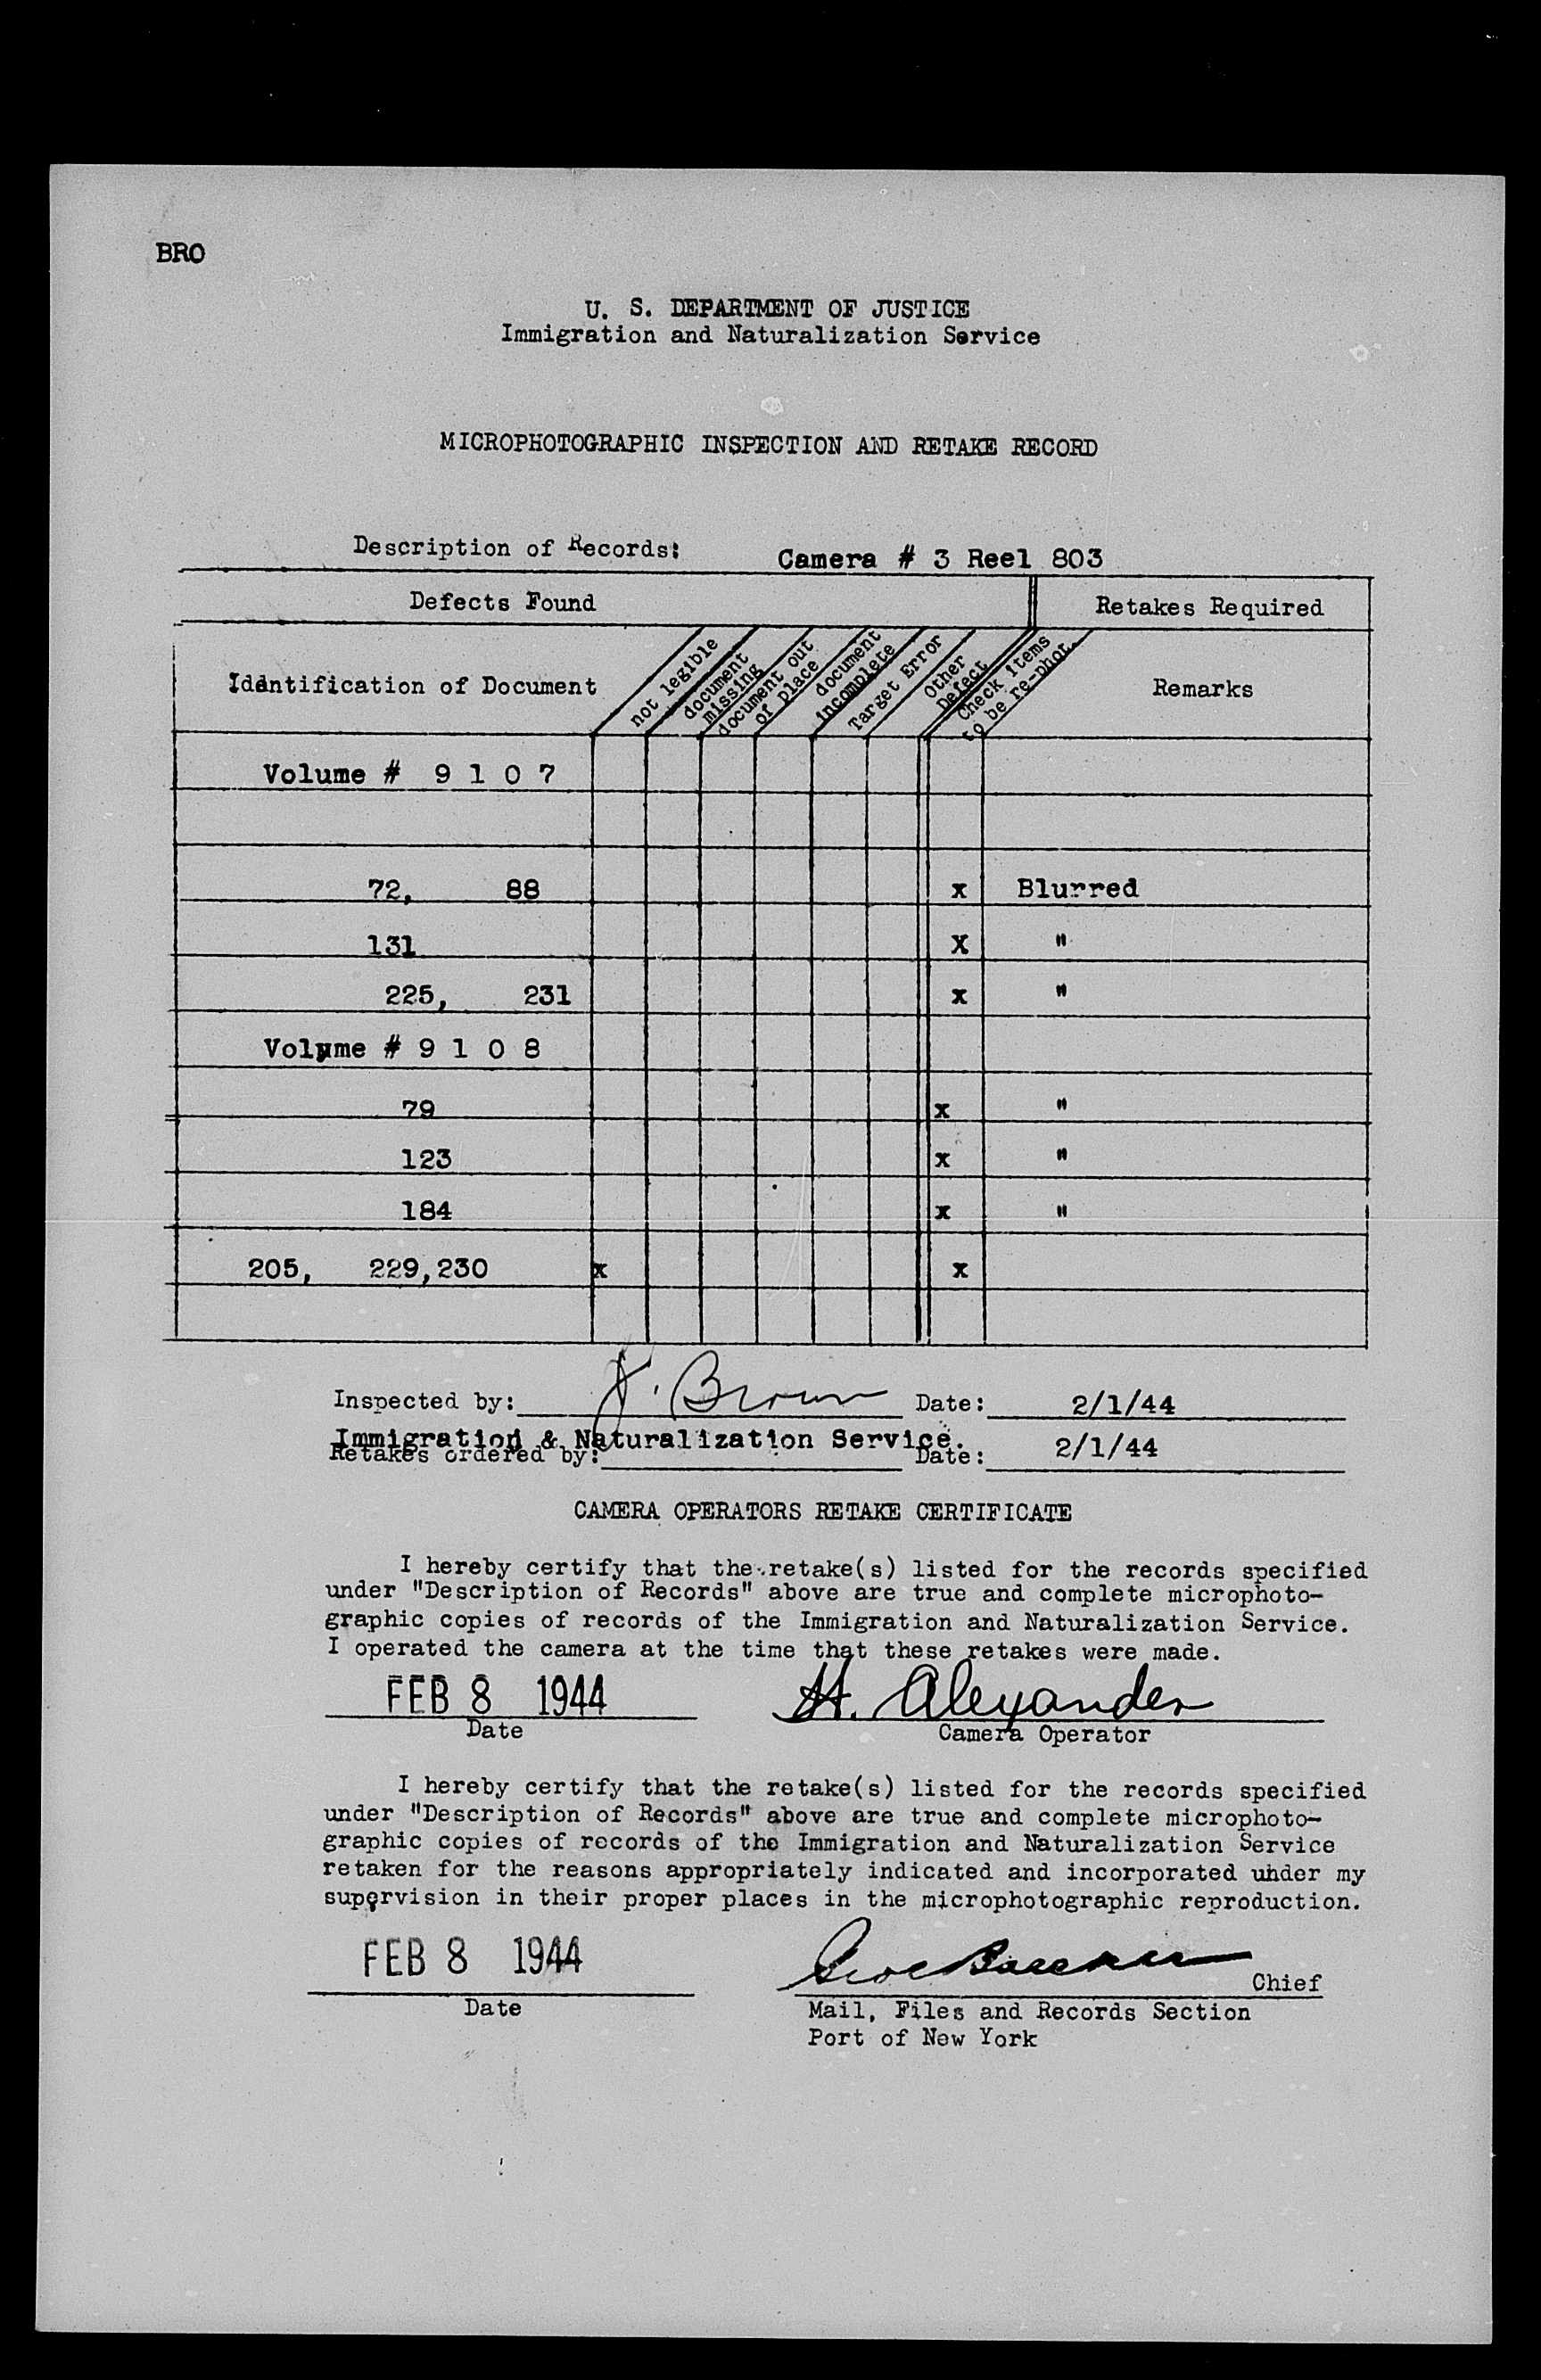 BRO
U. S. DEPARTMENT OF JUSTICE
Immigration and Naturalization Service
MICROPHOTOGRAPHIC INSPECTION AND RETAKE RECORD
Description of Records: Camera # 3 Reel 803
Defects Found Retakes Required
Idäntification of Document
not legible
document missing
document out of place
document incomplete
Target Error
Other Defect
Check items to be re-phot.
Remarks
Volume # 9 1 0 7
72, 88 x Blurred
131 X "
225, 231 x "
Volume # 9 1 0 8
79 x "
123 x "
184 x "
205, 229,230 x x
Inspected by: Brown Date: 2/1/44
Immigration & Naturalization Service.
Retakes ordered by: Date: 2/1/44
CAMERA OPERATORS RETAKE CERTIFICATE
I hereby certify that the retake(s) listed for the records specified
under "Description of Records" above are true and complete microphoto-
graphic copies of records of the Immigration and Naturalization Service.
I operated the camera at the time that these retakes were made.
FEB 8 1944 H. Alexander
Date Camera Operator
I hereby certify that the retake(s) listed for the records specified
under "Description of Records" above are true and complete microphoto-
graphic copies of records of the Immigration and Naturalization Service
retaken for the reasons appropriately indicated and incorporated under my
supervision in their proper places in the microphotographic reproduction.
FEB 8 1944 Chief
Date Mail, Files and Records Section
Port of New York